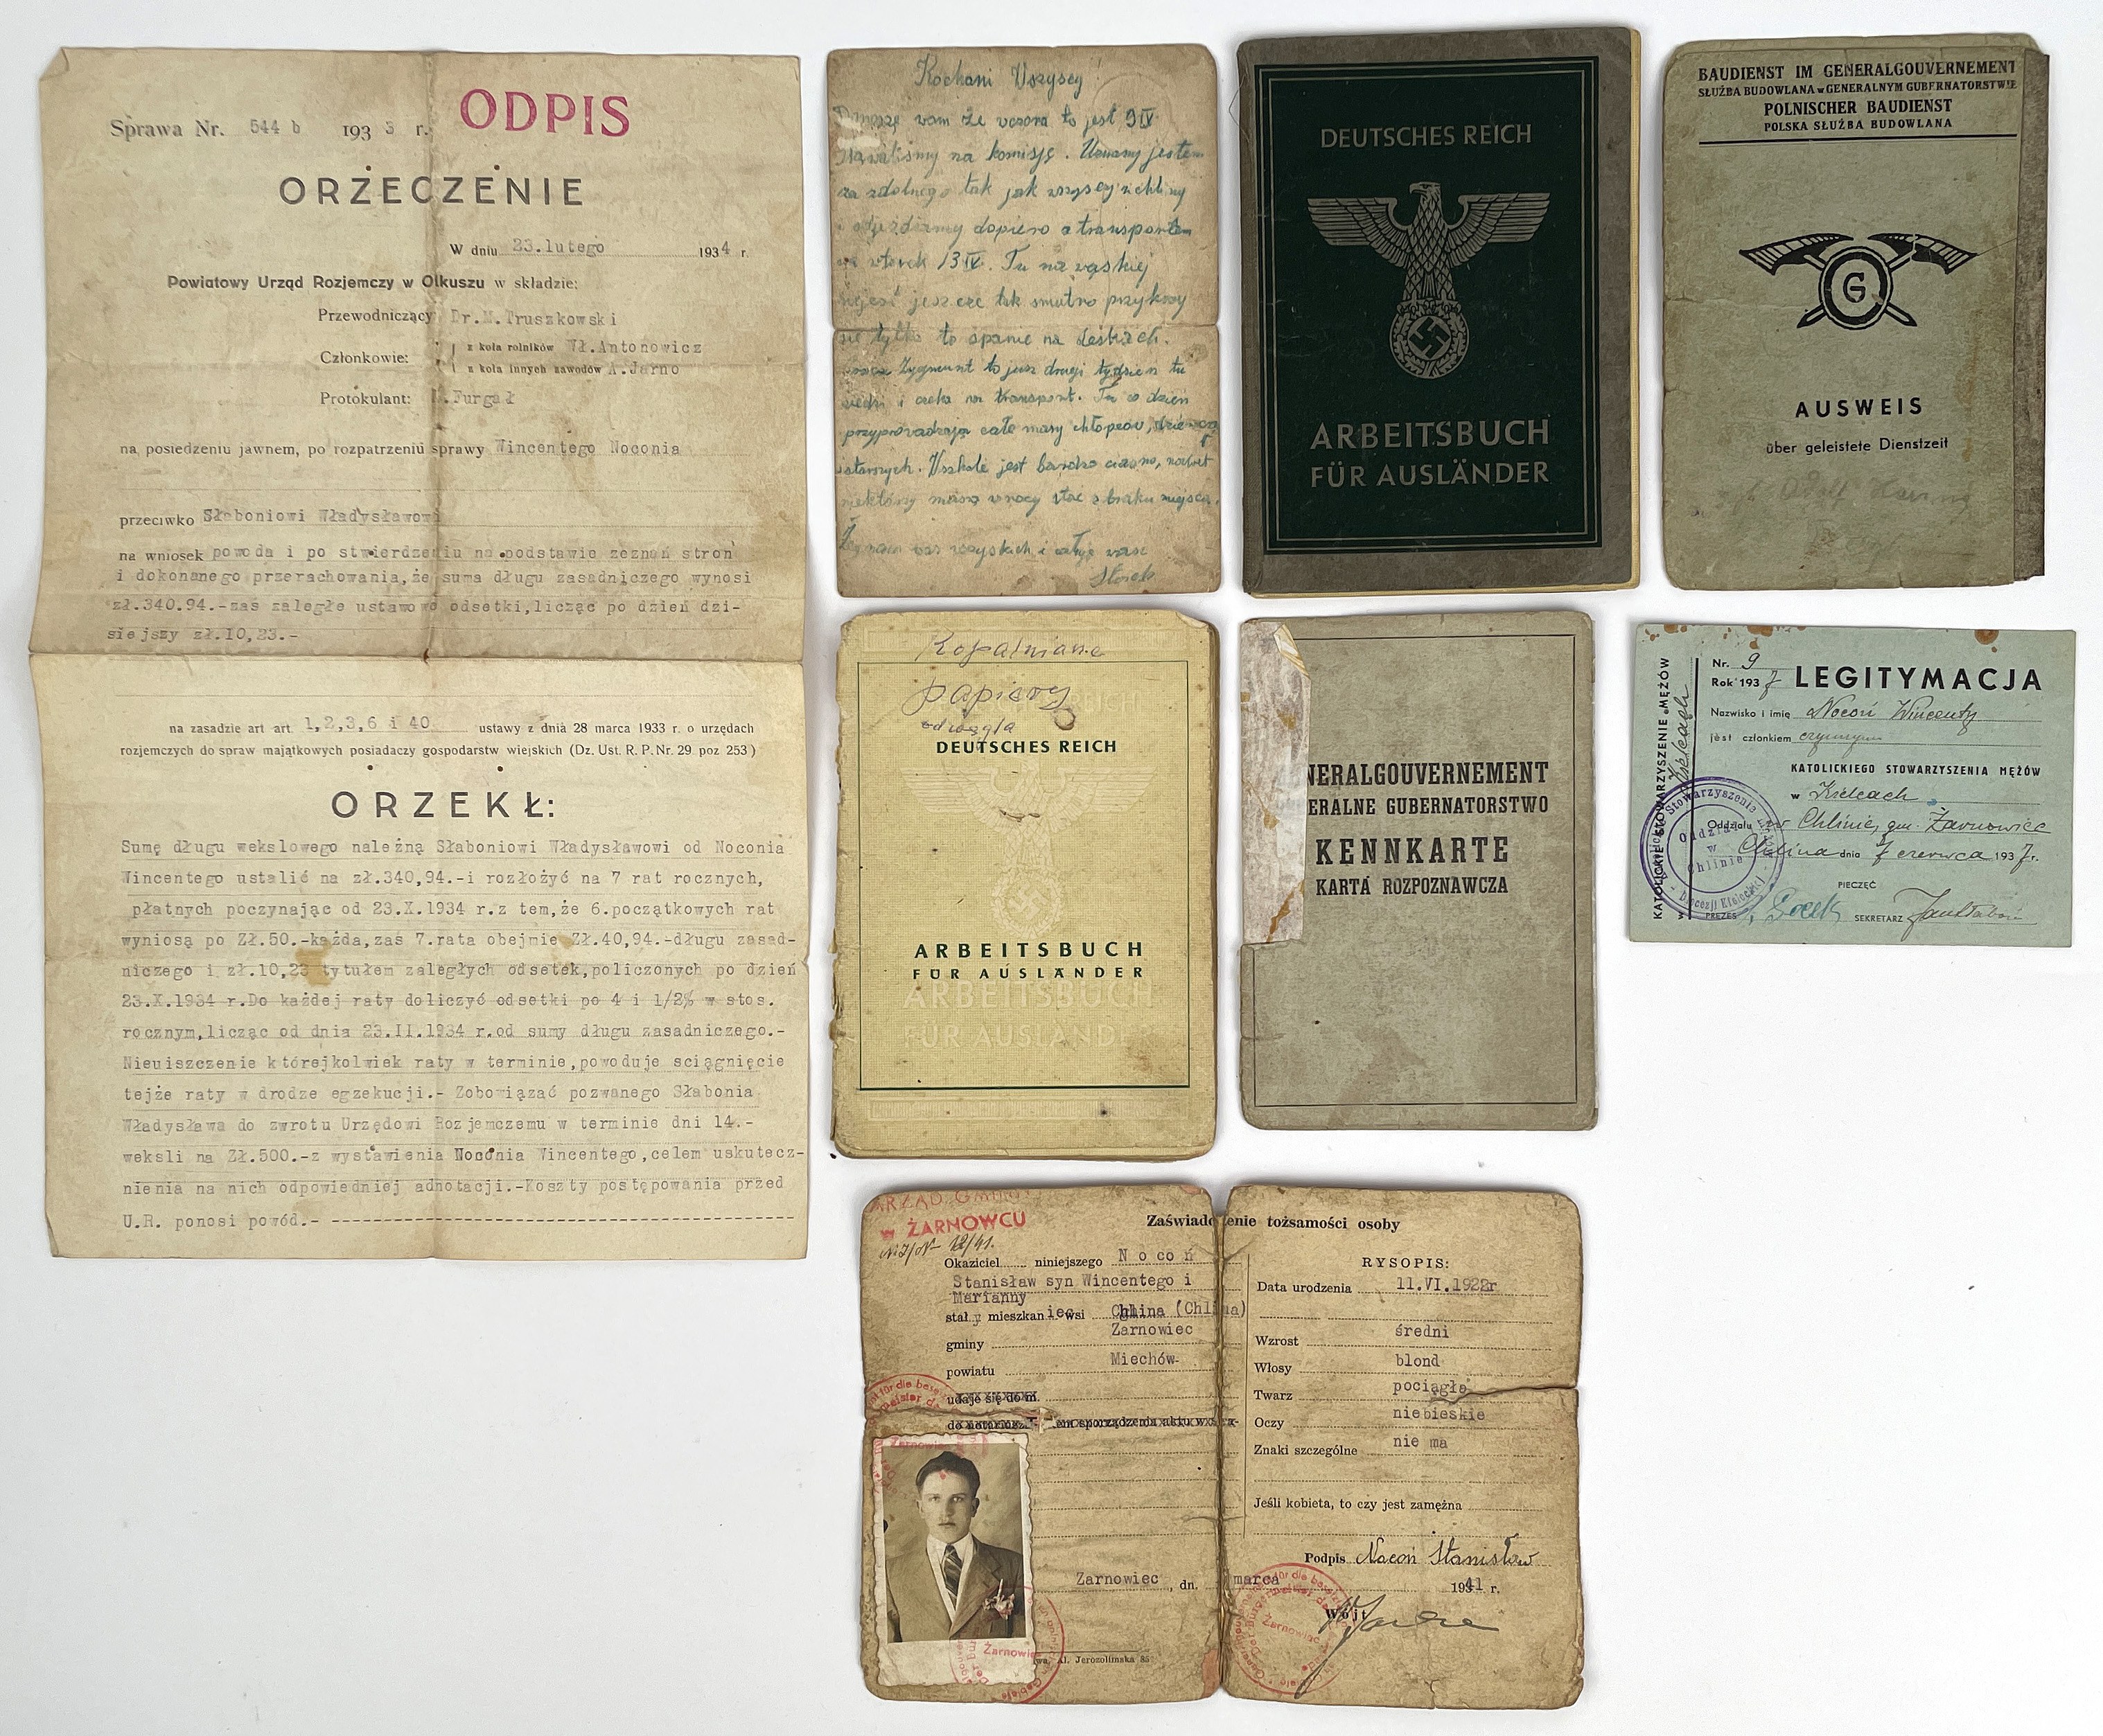 Sprawa Nr. 544 b 193 3 r.
ODPIS
ORZECZENIE
W dniu 23.lutego 1934 r.
Powiatowy Urząd Rozjemczy w Olkuszu w składzie:
Przewodniczący Dr.M.Truszkowski
Członkowie: z koła rolników Wł.Antonowicz
z koła innych zawodów A.Jarno
Protokulant: Furgał
na posiedzeniu jawnem, po rozpatrzeniu sprawy Wincentego Noconia
przeciwko Słaboniowi Władysławowi
na wniosek powoda i po stwierdzeniu na podstawie zeznań stron
i dokonanego przerachowania,że suma długu zasadniczego wynosi
zł.340.94.-zaś zaległe ustawowo odsetki,licząc po dzień dzi-
siejszy zł.10,23.-
na zasadzie art art. 1,2,3,6 i 40 ustawy z dnia 28 marca 1933 r. o urzędach
rozjemczych do spraw majątkowych posiadaczy gospodarstw wiejskich (Dz. Ust. R. P. Nr. 29 poz 253)
ORZEKŁ:
Sumę długu wekslowego należną Słaboniowi Władysławowi od Noconia
Wincentego ustalić na zł.340,94.-i rozłożyć na 7 rat rocznych,
płatnych poczynając od 23.X.1934 r.z tem,że 6.początkowych rat
wyniosą po Zł.50.-każda,zaś 7.rata obejmie Zł.40,94.-długu zasad-
niczego i zł.10,23 tytułem zaległych odsetek,policzonych po dzień
23.X.1934 r.Do każdej raty doliczyć odsetki po 4 i 1/2% w stos.
rocznym,licząc od dnia 23.II.1934 r.od sumy długu zasadniczego.-
Nieuiszczenie którejkolwiek raty w terminie,powoduje sciągnięcie
tejże raty w drodze egzekucji.- Zobowiązać pozwanego Słabonia
Władysława do zwrotu Urzędowi Rozjemczemu w terminie dni 14.-
weksli na Zł.500.-z wystawienia Noconia Wincentego,celem uskutecz-
nienia na nich odpowiedniej adnotacji.-Koszty postępowania przed
U.R. ponosi powód.-
Kochani Wszyscy!
Donoszę wam że wczora to jest 9 IV
stawaliśmy na komisję. Uznany jestem
za zdolnego tak jak wszyscy z chliny
odjeżdżamy dopiero z transportem
we wtorek 13 IV. Tu na wąskiej
niejest jeszcze tak smutno przykrzy
się tylko to spanie na deskach.
Zygmunt to jusz drugi tydzien tu
siedzi i czeka na transport. Tu co dzien
przyprowadzają całe masy chłopców, dziewcząt
i starszych. W szkole jest bardzo ciasno, nawet
niektórzy muszą w nocy stać z braku miejsca.
Żegnam was wszyskich i całuję wasz
Stasek
DEUTSCHES REICH
ARBEITSBUCH
FÜR AUSLÄNDER
BAUDIENST IM GENERALGOUVERNEMENT
SŁUŻBA BUDOWLANA w GENERALNYM GUBERNATORSTWIE
POLNISCHER BAUDIENST
POLSKA SŁUŻBA BUDOWLANA
G
AUSWEIS
über geleistete Dienstzeit
Kopalniane
papiery
od węgla
DEUTSCHES REICH
ARBEITSBUCH
FÜR AUSLÄNDER
ARBEITSBUCH
FÜR AUSLÄNDER
NERALGOUVERNEMENT
ERALNE GUBERNATORSTWO
KENNKARTE
KARTA ROZPOZNAWCZA
KATOLICKIE STOWARZYSZENIE MĘŻÓW
w Kielcach
Nr. 9
Rok 193 7 LEGITYMACJA
Nazwisko i imię Nocoń Wincenty
jest członkiem czynnym
KATOLICKIEGO STOWARZYSZENIA MĘŻÓW
w Kielcach
Oddziału w Chlinie, gm. Żarnowiec
Chlina dnia 7 czerwca 1937 r.
PIECZĘĆ
PREZES SEKRETARZ
Stowarzyszenie
Oddział
w
Chlinie
Diecezji Kieleckiej
ARZĄD GMINY
w ŻARNOWCU
12/41.
Zaświadczenie tożsamości osoby
Okaziciel niniejszego Nocoń
Stanisław syn Wincentego i
Marianny
stały mieszkaniec wsi Chlina (Chlina)
gminy Zarnowiec
powiatu Miechów
udaje się do m.
Zarnowiec, dn. marca 1941 r.
Al. Jerozolimska 85
RYSOPIS:
Data urodzenia 11.VI.1922r
Wzrost średni
Włosy blond
Twarz pociągła
Oczy niebieskie
Znaki szczególne nie ma
Jeśli kobieta, to czy jest zamężna
Podpis Nocoń Stanisław
Wójt
Żarnowiec
Żarnowiec
Żarnowiec